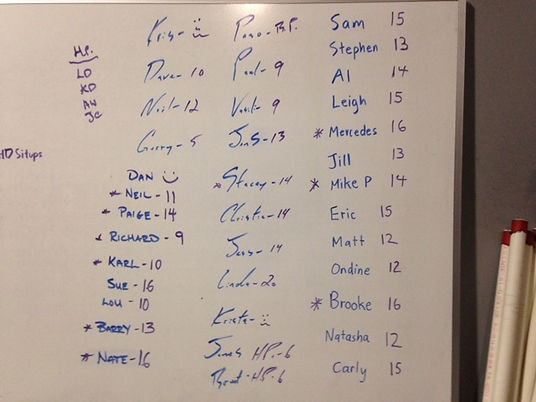 H.P.
LD
KD
AN
JC
HD Situps
Kris -
Dave - 10
Neil - 12
Gorry - 5
DAN
* NEIL - 11
* PAIGE - 14
* RICHARD - 9
* KARL - 10
SUE - 16
LOU - 10
* BARRY - 13
* NATE - 16
Paul - 9
Jens - 13
* Stacey - 14
Christie - 14
Jess - 14
Linda - 20
Krista -
James HP. - 6
Brent - HP. 6
Sam 15
Stephen 13
Al 14
Leigh 15
* Mercedes 16
Jill 13
* Mike P 14
Eric 15
Matt 12
Ondine 12
* Brooke 16
Natasha 12
Carly 15